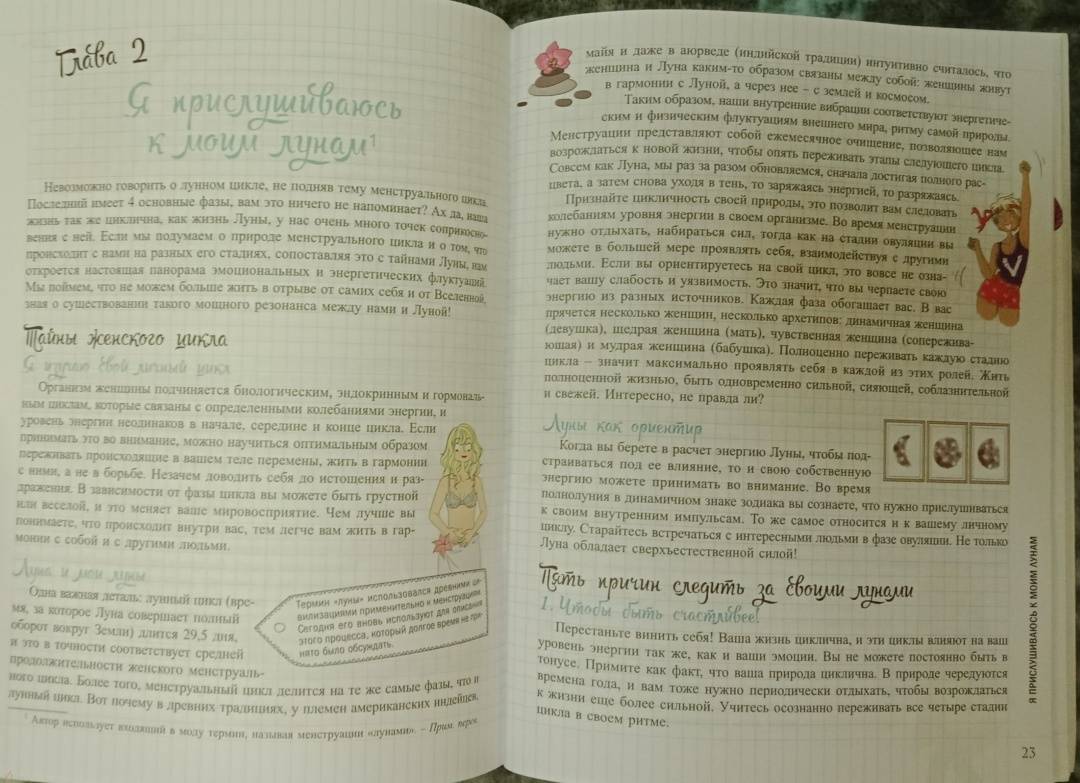 Глава 2
Я прислушиваюсь
к моим лунам¹
Невозможно говорить о лунном цикле, не подняв тему менструального цикла.
Последний имеет 4 основные фазы, вам это ничего не напоминает? Ах да, наша
жизнь так же циклична, как жизнь Луны, у нас очень много точек соприкосно-
вения с ней. Если мы подумаем о природе менструального цикла и о том, что
происходит с нами на разных его стадиях, сопоставляя это с тайнами Луны, нам
откроется настоящая панорама эмоциональных и энергетических флуктуаций.
Мы поймем, что не можем больше жить в отрыве от самих себя и от Вселенной,
зная о существовании такого мощного резонанса между нами и Луной!
Тайны женского цикла
Я изучаю свой личный цикл
Организм женщины подчиняется биологическим, эндокринным и гормональ-
ным циклам, которые связаны с определенными колебаниями энергии, и
уровень энергии неодинаков в начале, середине и конце цикла. Если
принимать это во внимание, можно научиться оптимальным образом
переживать происходящие в вашем теле перемены, жить в гармонии
с ними, а не в борьбе. Незачем доводить себя до истощения и раз-
дражения. В зависимости от фазы цикла вы можете быть грустной
или веселой, и это меняет ваше мировосприятие. Чем лучше вы
понимаете, что происходит внутри вас, тем легче вам жить в гар-
монии с собой и с другими людьми.
Луна и мои луны
Одна важная деталь: лунный цикл (вре-
мя, за которое Луна совершает полный
оборот вокруг Земли) длится 29,5 дня,
и это в точности соответствует средней
продолжительности женского менструаль-
ного цикла. Более того, менструальный цикл делится на те же самые фазы, что и
лунный цикл. Вот почему в древних традициях, у племен американских индейцев,
Термин «луны» использовался древними ци-
вилизациями применительно к менструациям.
Сегодня его вновь используют для описания
этого процесса, который долгое время не при-
нято было обсуждать.
¹ Автор использует входящий в моду термин, называя менструации «лунами». – Прим. перев.
майя и даже в аюрведе (индийской традиции) интуитивно считалось, что
женщина и Луна каким-то образом связаны между собой: женщины живут
в гармонии с Луной, а через нее – с землей и космосом.
Таким образом, наши внутренние вибрации соответствуют энергетиче-
ским и физическим флуктуациям внешнего мира, ритму самой природы.
Менструации представляют собой ежемесячное очищение, позволяющее нам
возрождаться к новой жизни, чтобы опять переживать этапы следующего цикла.
Совсем как Луна, мы раз за разом обновляемся, сначала достигая полного рас-
цвета, а затем снова уходя в тень, то заряжаясь энергией, то разряжаясь.
Признайте цикличность своей природы, это позволит вам следовать
колебаниям уровня энергии в своем организме. Во время менструации
нужно отдыхать, набираться сил, тогда как на стадии овуляции вы
можете в большей мере проявлять себя, взаимодействуя с другими
людьми. Если вы ориентируетесь на свой цикл, это вовсе не озна-
чает вашу слабость и уязвимость. Это значит, что вы черпаете свою
энергию из разных источников. Каждая фаза обогащает вас. В вас
прячется несколько женщин, несколько архетипов: динамичная женщина
(девушка), щедрая женщина (мать), чувственная женщина (сопережива-
ющая) и мудрая женщина (бабушка). Полноценно переживать каждую стадию
цикла – значит максимально проявлять себя в каждой из этих ролей. Жить
полноценной жизнью, быть одновременно сильной, сияющей, соблазнительной
и свежей. Интересно, не правда ли?
Луны как ориентир
Когда вы берете в расчет энергию Луны, чтобы под-
страиваться под ее влияние, то и свою собственную
энергию можете принимать во внимание. Во время
полнолуния в динамичном знаке зодиака вы сознаете, что нужно прислушиваться
к своим внутренним импульсам. То же самое относится и к вашему личному
циклу. Старайтесь встречаться с интересными людьми в фазе овуляции. Не только
Луна обладает сверхъестественной силой!
Пять причин следить за своими лунами
1. Чтобы быть счастливее!
Перестаньте винить себя! Ваша жизнь циклична, и эти циклы влияют на ваш
уровень энергии так же, как и ваши эмоции. Вы не можете постоянно быть в
тонусе. Примите как факт, что ваша природа циклична. В природе чередуются
времена года, и вам тоже нужно периодически отдыхать, чтобы возрождаться
к жизни еще более сильной. Учитесь осознанно переживать все четыре стадии
цикла в своем ритме.
Я ПРИСЛУШИВАЮСЬ К МОИМ ЛУНАМ
23
V